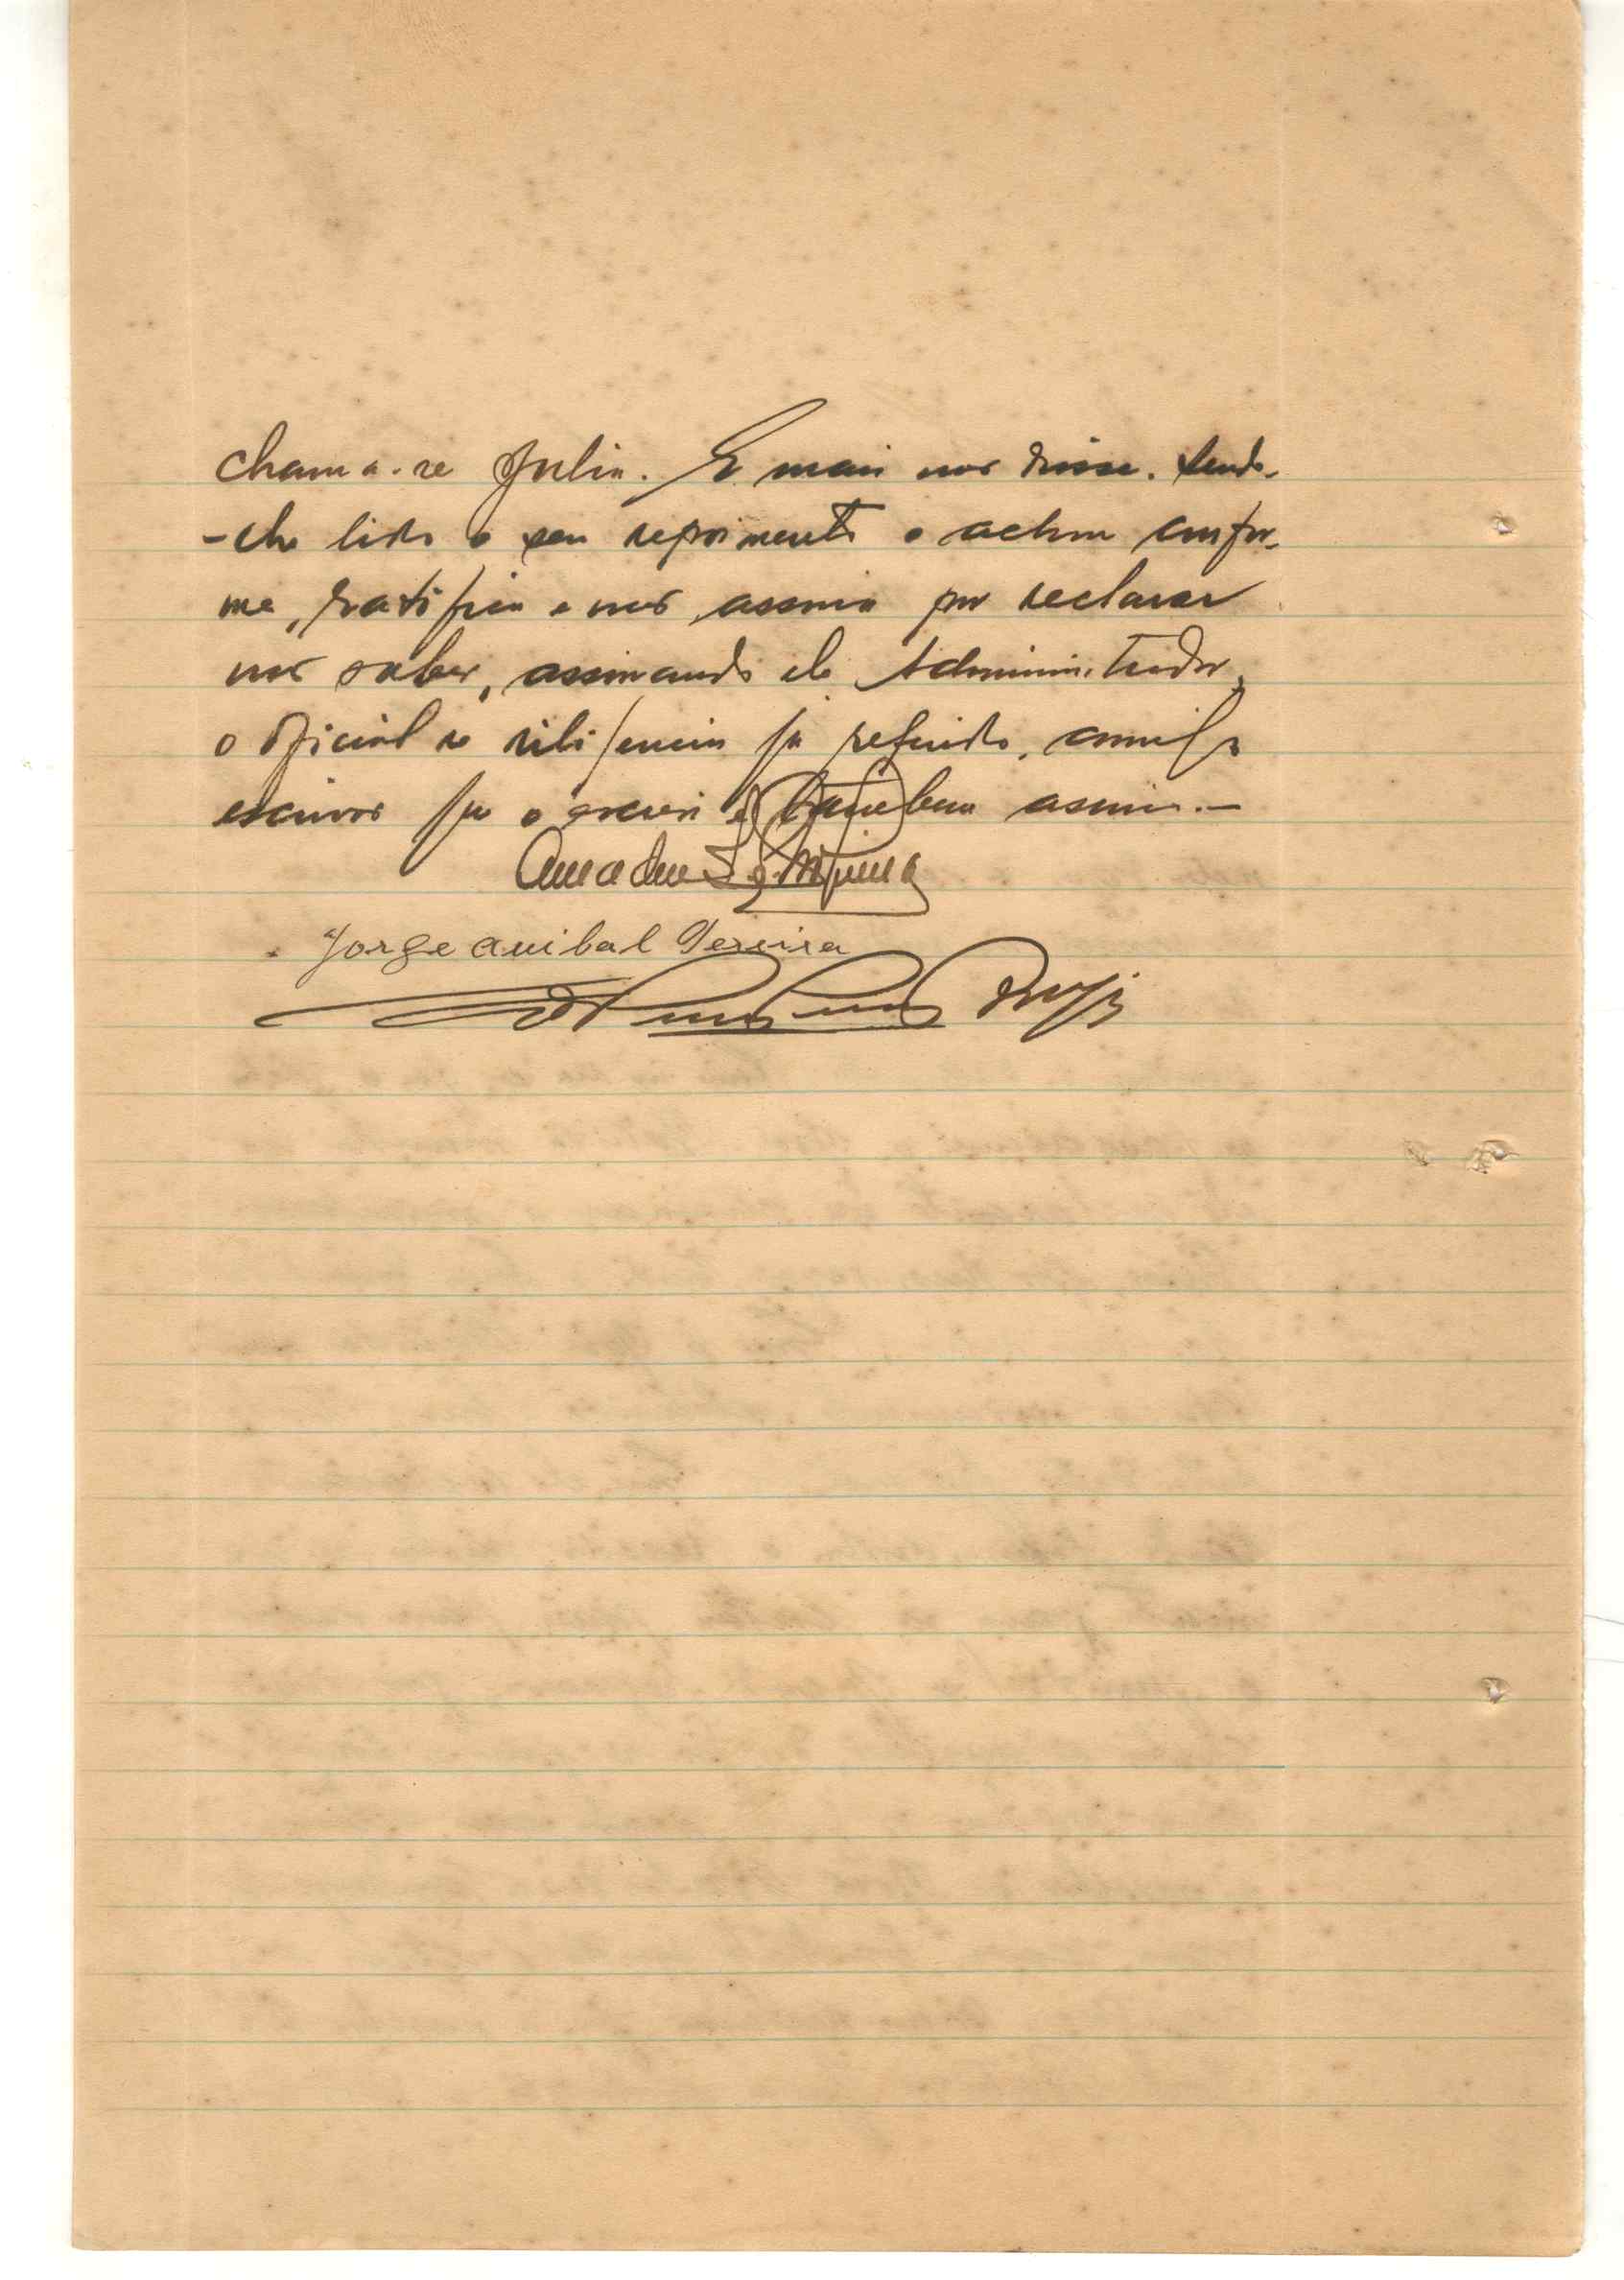 chama-se Julia. E mais não disse. Sendo-
-lhe lido o seu depoimento o achou confor-
me, ratifica e não assina por declarar
não saber, assinando ele Administrador,
o oficial de diligencia já referido, comigo
escrivão que o escrevi e tambem assino.-
Amadeu
Jorge Anibal Pereira